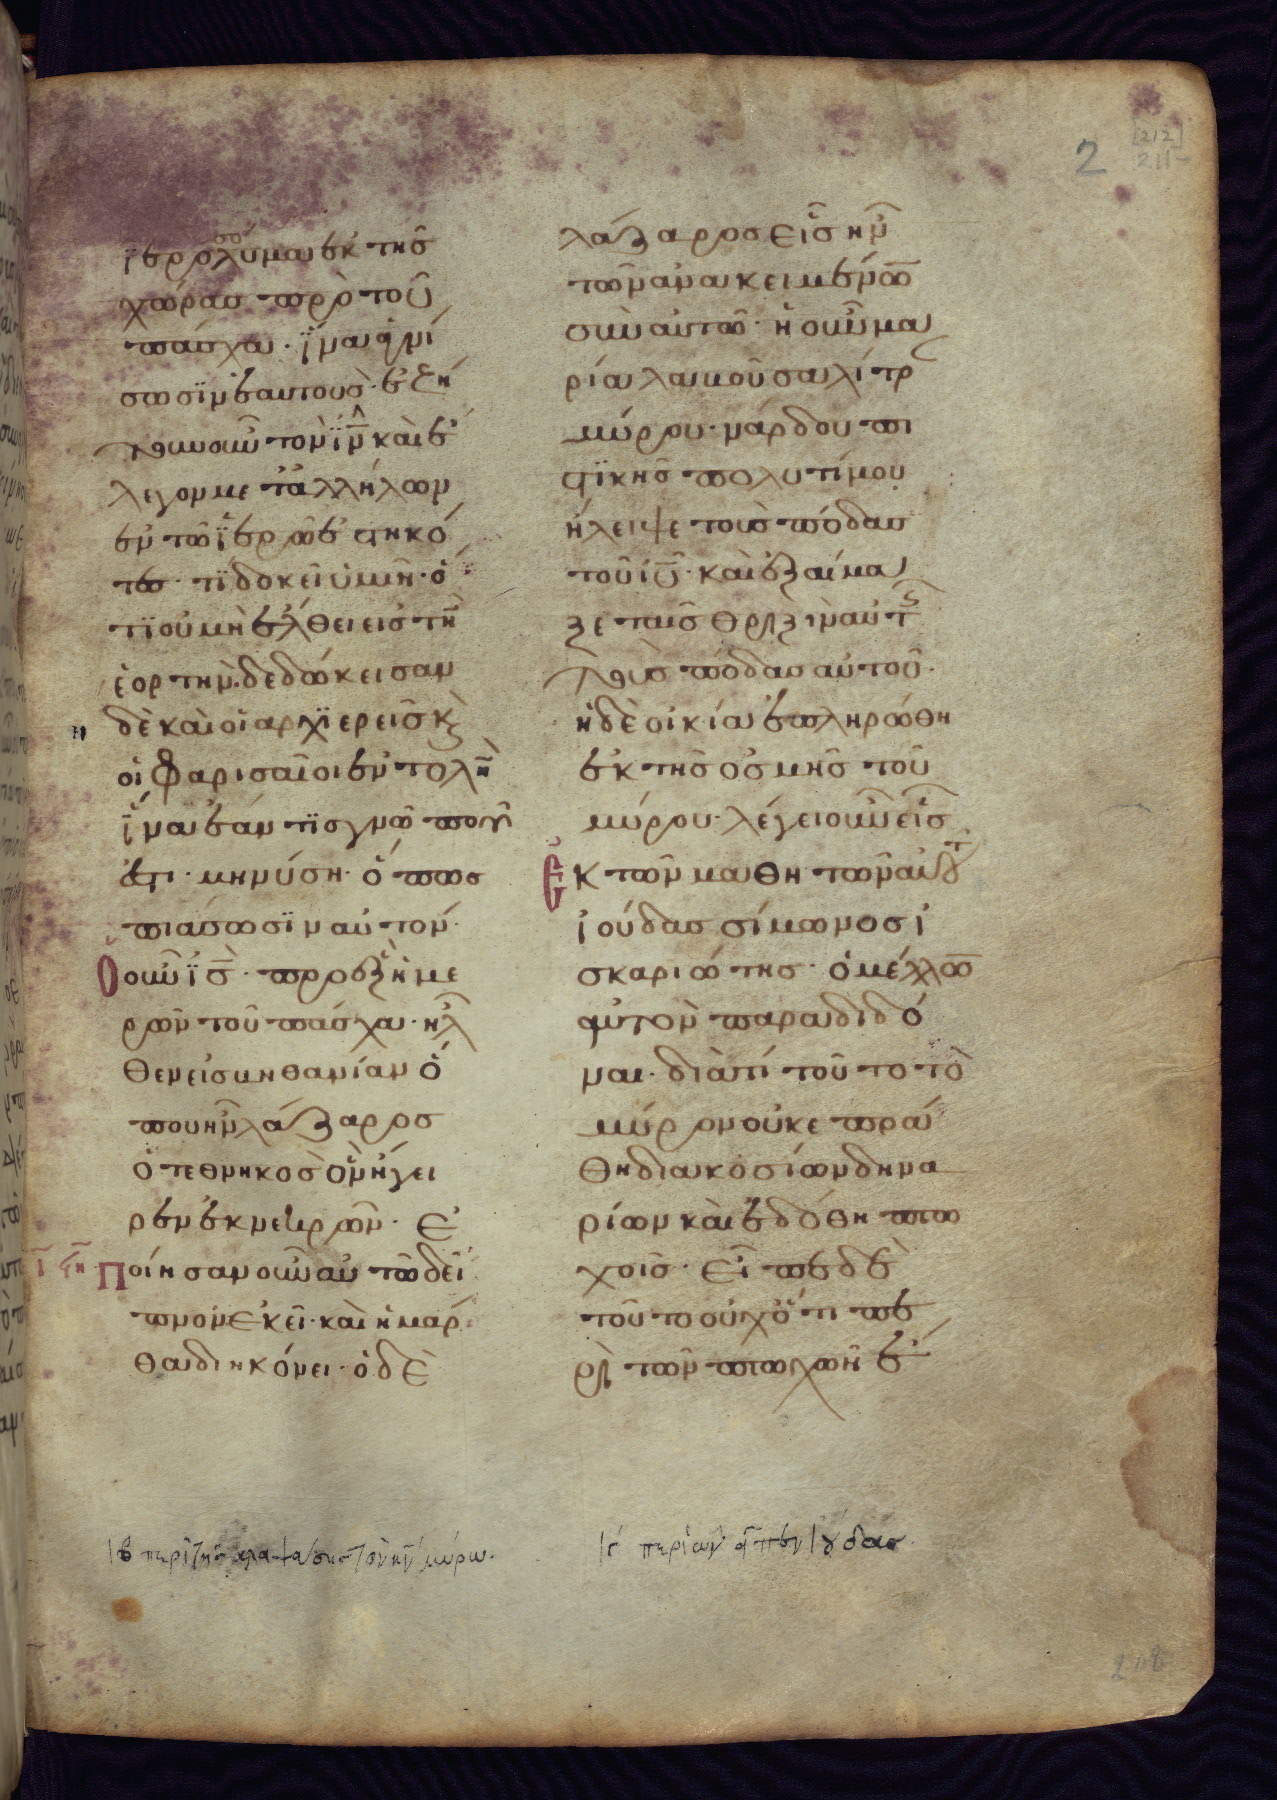 2
[212]
211
ϊεροσολυμα ἐκ τῆς
χώρας πρὸ τοῦ
πάσχα· ϊνα ἁγνί
σωσϊν ἑαυτούς· ἐζή
τουν οὖν τὸν ῑν̄ καὶ ἔ
λεγον μετἀλλήλων
ἐν τῶ ϊερῶ ἑστηκό
τες· τί δοκεῖ ὑμῖν· ὅ
τϊ οὐ μὴ ἔλθει εἰς τὴν
ἑορτήν· δεδώκεισαν
δὲ καὶ οἱ ἀρχϊερεῖς κ
οἱ Φαρισαῖοι ἐντολὴν
ἵνα ἐάν τϊς γνῶ ποῦ
ἐστι· μηνύση· ὅπως
πιάσωσϊν αὐτόν·
Ὁ οὖν ῑς̄· πρὸ ἓξ ἡμε
ρῶν τοῦ πάσχα· ἦλ
θεν εἰς βηθανίαν ὅ
που ἦν λάζαρος
ὁ τεθνηκὸς ὃν ἤγει
ρεν ἐκ νεκρῶν· Ἐ
Ποίησαν οὖν αὐτῶ δεῖ
πνον ἐκεῖ· καὶ ἡ μάρ
θα διηκόνει· ὁ δὲ
λάζαρος εἷς ἦν
τῶν ἀνακειμένων
σὺν αὐτῶ· ἡ οὖν μα
ρία λαβοῦσα λίτρ
μύρου· νάρδου πι
στϊκῆς πολυτίμου
ἤλειψε τοὺς πόδας
τοῦ ῑῡ· καὶ ἐξαίμα
ξε ταῖς θριξὶν αὐτ
τοὺς πόδας αὐτοῦ·
ἡ δὲ οἰκία ἐπληρώθη
ἐκ τῆς ὀσμῆς τοῦ
μύρου· λέγει οὖν εἷς
Ἐκ τῶν μαθητῶν αὐτ
ἰούδας σίμωνος ἰ
σκαριώτης· ὁ μέλλων
αὐτὸν παραδιδό
ναι· διὰ τί τοῦτο τὸ
μύρον οὐκ ἐπρά
θη διακοσίων δηνα
ρίων καὶ ἐδόθη πτω
χοῖς· Εἶπε δὲ
τοῦτο οὐχ ὅτι πε
ρὶ τῶν πτωχῶν ἔ
ιβ περὶ τῆς αλειψάσης τὸν κν μύρω·
ιγ περὶ ὧν εἶπεν ἰούδας·
208